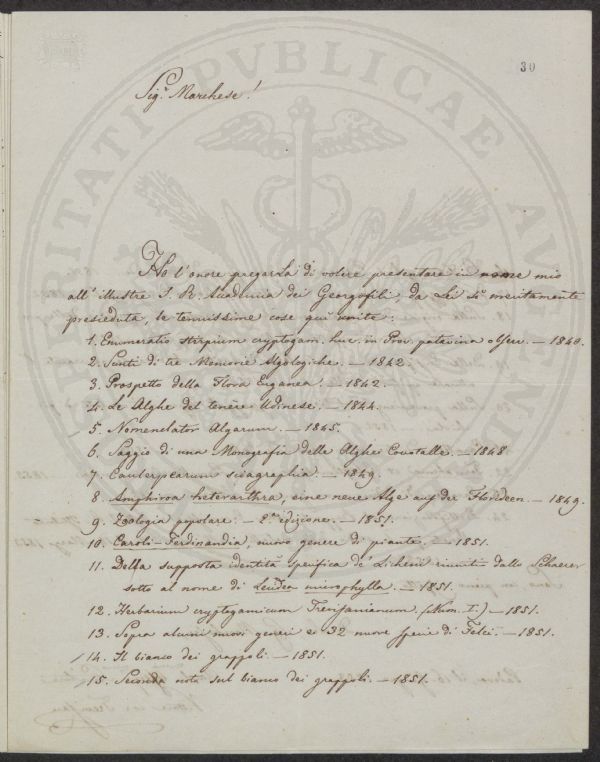 30
Sig.r Marchese!
Ho l'onore pregarLa di volere presentare in nome mio
all' illustre I. R. Accademia dei Georgofili, da Lei sì meritamente
presieduta, le tenuissime cose qui unite:
1. Enumeratio stirpium cryptogam. huc. in Prov. patavina observ. — 1840.
2. Sunti di tre Memorie Algologiche. — 1842.
3. Prospetto della Flora Euganea. — 1842.
4. Le Alghe del tenère Udinese. — 1844.
5. Nomenclator Algarum. — 1845.
6. Saggio di una Monografia delle Alghe Coccotalle. — 1848
7. Caulerpearum sciagraphia. — 1849.
8. Amphiroa heterarthra, eine neue Alge auf der Florideen. — 1849.
9. Zoologia popolare. — 2.a edizione. — 1851.
10. Caroli-Ferdinandia, nuovo genere di piante. — 1851.
11. Della supposta identità specifica de' Licheni riuniti dallo Schaerer
sotto al nome di Lecidea microphylla. — 1851.
12. Herbarium cryptogamicum Trevisanianum. (Num. I.) — 1851.
13. Sopra alcuni nuovi generi e 32 nuove specie di Felci. — 1851.
14. Il bianco dei grappoli. — 1851.
15. Seconda nota sul bianco dei grappoli. — 1851.
PVBLICAE